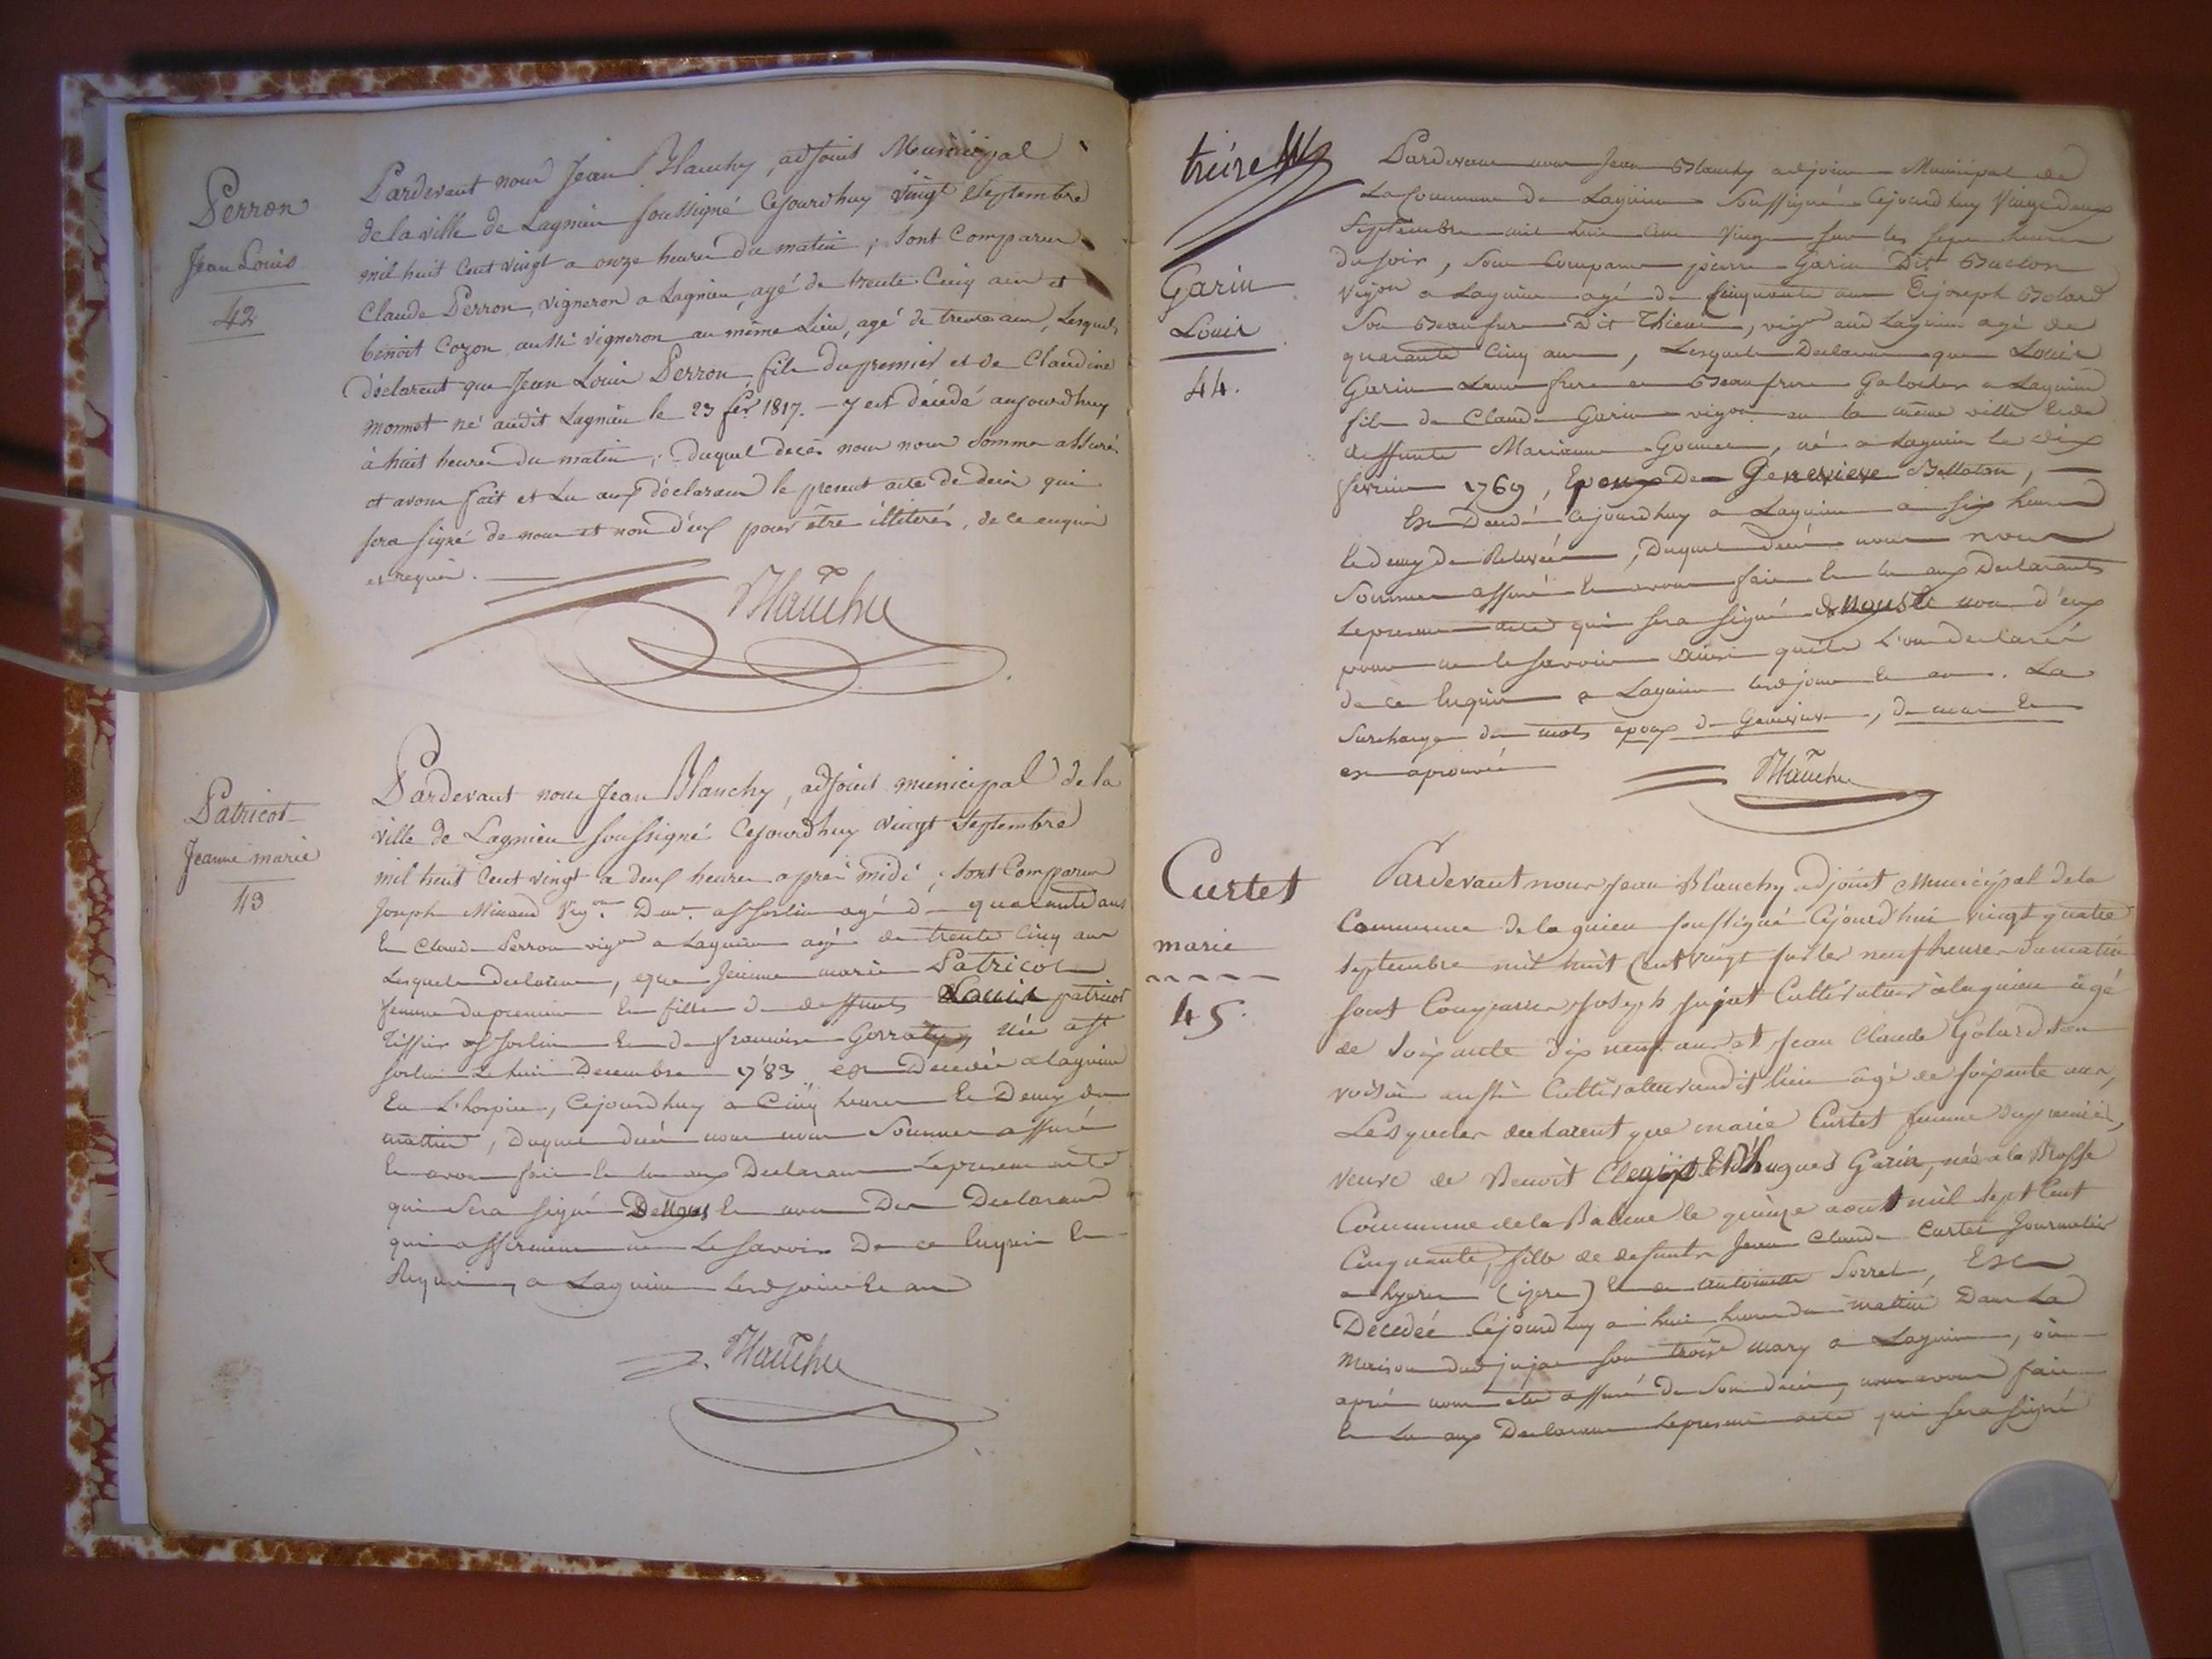 Perron
Jean Louis
42
Pardevant nous Jean Blanchy, adjoint Municipal
de la ville de Lagnieu soussigné Cejourdhuy vingt Septembre
mil huit Cent vingt a onze heures du matin ; sont Comparus
Claude Perron, vigneron a Lagnieu, agé de trente Cinq ans et
benoit Cozon aussi vigneron au même Lieu, agé de trente ans, Lesquels
déclarent que Jean Louis Perron fils du premier et de Claudine
monnet né audit Lagnieu le 23 fer 1817. — y est décédé aujourdhuy
à huit heures du matin ; duquel décès nous nous sommes assurés
et avons fait et Lu aux déclarans le present acte de décès qui
sera signé de nous et non d'eux pour être illiterés, de ce enquis
et requis.
Blanchy
Patricot
Jeanne marie
43
Pardevant nous Jean Blanchy, adjoint municipal de la
ville de Lagnieu soussigné Cejourdhuy vingt Septembre
mil huit Cent vingt a deux heures après midi ; sont Comparus
Joseph Minaud Vigon agé de quarante ans
Et Claude Perron vigon a Lagnieu agé de trente Cinq ans
Lesquels declarent, que Jeanne marie Patricot
femme du premier Et fille de deffunts Louis patricot
Tissier Et de francoise née
Le huit Decembre 1783 est Decedée a Lagnieu
En L'hospice, Cejourdhuy a Cinq heures Et Demy du
mattin, Duquel décé nous nous Sommes assuré
Et avons fait Et lu aux Declarans Le present acte
qui Sera signé De Nous Et non Des Declarans
qui affirment ne Le Savoir De ce Enquis Et
Requis, a Lagnieu lesd jour Et an
Blanchy
treize
Garin
Louis
44.
Pardevant nous Jean Blanchy adjoint Municipal de
La Commune de Lagnieu Soussigné Cejourdhuy Vingt Deux
Septembre mil huit Cent Vingt sur les sept heures
du soir, Sont Comparus pierre Garin Dit
vigon a Lagnieu agé de Cinquante ans Et joseph
Son Beaufrere Dit Thieu, vigon aud Lagnieu agé de
quarante Cinq ans, Lesquels Declarent que Louis
Garin Leur frere et Beaufrere a Lagnieu
fils de Claude Garin vigon en la même ville Et de
deffunte Marianne né a Lagnieu le dix
fevrier 1769, Epoux De Genevieve
Est Decedé Cejourdhuy a Lagnieu a six heures
Et demy de Relevée, Duquel decé nous nous
Sommes assuré Et avons fait Et lu aux Declarants
Le present acte qui sera signé de nous Et non d'eux
pour ne le savoir Ainsi qu'ils L'ont declaré
de ce Enquis a Lagnieu lesd jour Et an. La
Surcharge des mots epoux de Genevieve, de nous Et
est aprouvé
Blanchy
Curtet
marie
45.
Pardevant nous Jean Blanchy adjoint Municipal de la
Commune de lagnieu soussigné Cejourd'hui vingt quatre
septembre mil huit Cent vingt sur les neuf heures du matin
sont Comparus Joseph Jujat Cultivateur à lagnieu âgé
de soixante dix neuf ans et Jean Claude Golard son
voisin aussi Cultivateur audit lieu âgé de soixante ans,
Lesquels declarent que marie Curtet femme du premier,
veuve de Benoit Et D'hugues Garin, née à la Brosse
Commune de la Balme le quinze aout mil sept Cent
Cinquante, fille de defunts Jean Claude Curtet Journalier
a hyere (izere) Et de Antoinette Sorret, Est
Decedée Cejourdhuy a huit heures du mattin Dans La
Maison dud jujat son troise mary a Lagnieu, où
après nous etre assuré de Son decé, nous avons fait
Et Lu aux Declarans Le present acte qui sera signé